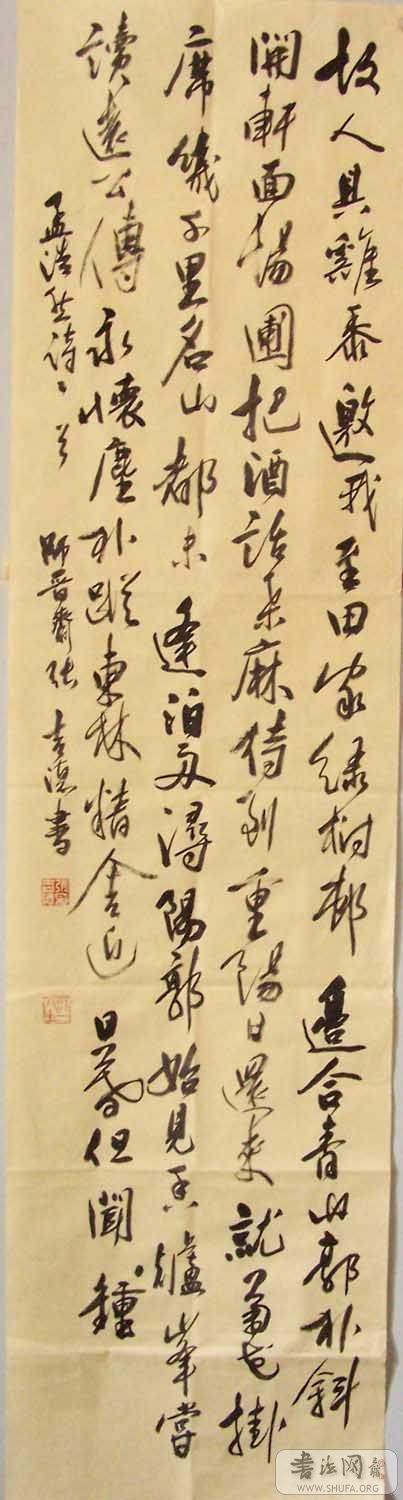 故人具雞黍邀我至田家綠樹邨邊合青山郭外斜
開軒面場圃把酒話桑麻待到重陽日還來就菊花掛
席幾千里名山都未逢泊舟潯陽郭始見香爐峯嘗
讀遠公傳永懷塵外蹤東林精舍近日暮但聞鐘
孟浩然詩二首 師晉齋張吉德書
書法网
WWW.SHUFA.ORG